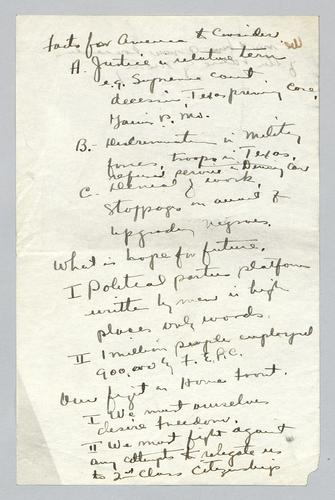 Facts for America to Consider
A. Justice a relative term
e.g. Supreme Court
decision, Texas primary case,
vs. Ms.
B.- Discrimination in Military
forces, troops in Texas,
refused service in Dining Car
C.- Denial of work,
Stoppages on account of
upgrading Negroes.
What is hope for future.
I Political parties platforms
written by men in high
places only words.
II 1 million people employed
900,000 by F.E.P.C.
Our fight on Home front.
I We must ourselves
desire freedom.
II We must fight against
any attempts to relegate us
to 2nd Class Citizenship